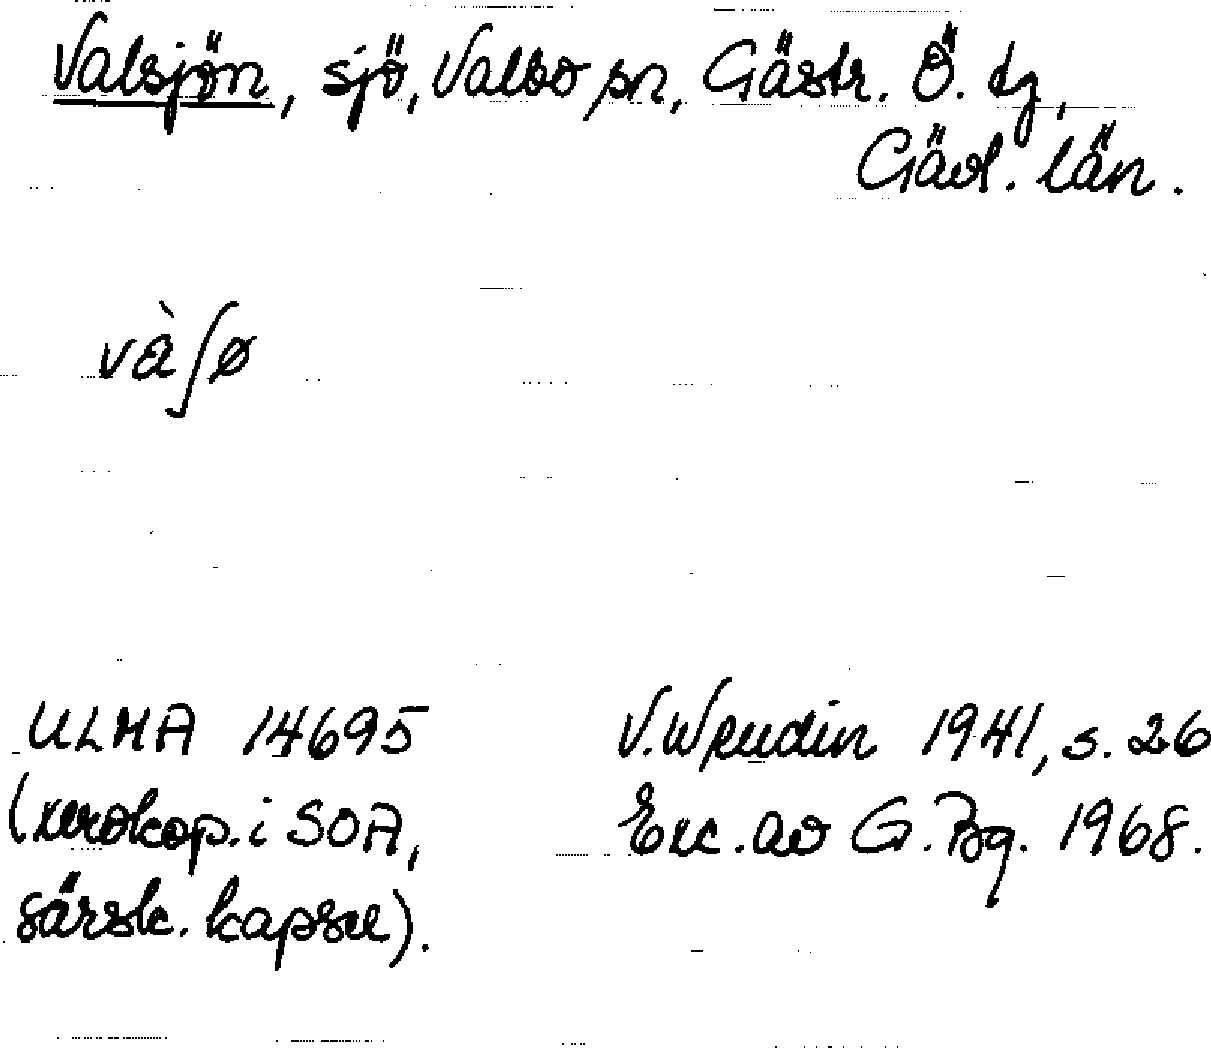 Valsjön, sjö, Valbo sn, Gästr. Ö. dg,
Gävl. län.
và∫ø
ULMA 14695
(xerokop. i SOA,
särsk. kapsel).
V. Wrudin 1941, s. 26
Exc. av G. Bg. 1968.